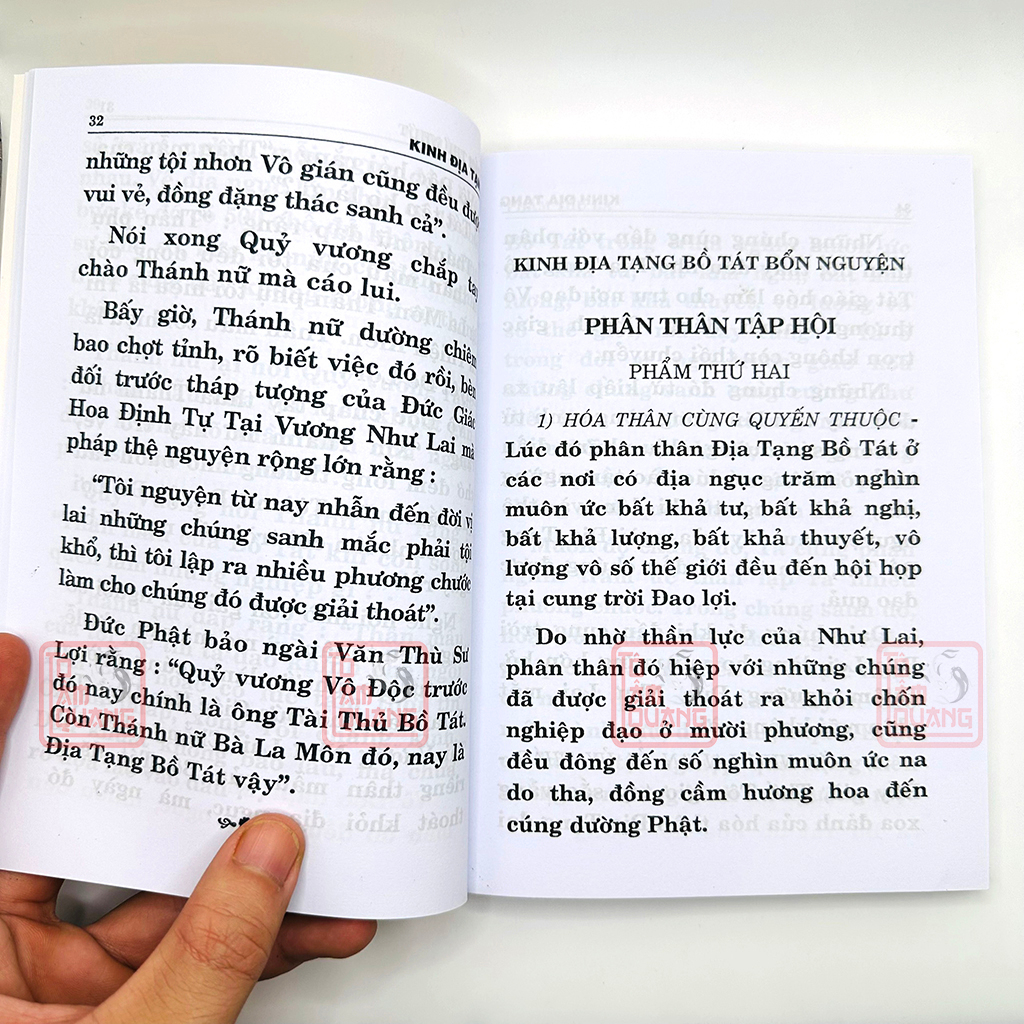 32
KINH ĐỊA TẠ
những tội nhơn Vô gián cũng đều đượ
vui vẻ, đồng đặng thác sanh cả”.
Nói xong Quỷ vương chắp tay
chào Thánh nữ mà cáo lui.
Bấy giờ, Thánh nữ dường chiêm
bao chợt tỉnh, rõ biết việc đó rồi, bèn
đối trước tháp tượng của Đức Giác
Hoa Định Tự Tại Vương Như Lai mà
pháp thệ nguyện rộng lớn rằng :
“Tôi nguyện từ nay nhẫn đến đời vị
lai những chúng sanh mắc phải tội
khổ, thì tôi lập ra nhiều phương chước
làm cho chúng đó được giải thoát”.
Đức Phật bảo ngài Văn Thù Sư
Lợi rằng : “Quỷ vương Vô Độc trước
đó nay chính là ông Tài Thủ Bồ Tát.
Còn Thánh nữ Bà La Môn đó, nay là
Địa Tạng Bồ Tát vậy”.
KINH ĐỊA TẠNG BỒ TÁT BỔN NGUYỆN
PHÂN THÂN TẬP HỘI
PHẨM THỨ HAI
1) HÓA THÂN CÙNG QUYẾN THUỘC -
Lúc đó phân thân Địa Tạng Bồ Tát ở
các nơi có địa ngục trăm nghìn
muôn ức bất khả tư, bất khả nghị,
bất khả lượng, bất khả thuyết, vô
lượng vô số thế giới đều đến hội họp
tại cung trời Đao lợi.
Do nhờ thần lực của Như Lai,
phân thân đó hiệp với những chúng
đã được giải thoát ra khỏi chốn
nghiệp đạo ở mười phương, cũng
đều đông đến số nghìn muôn ức na
do tha, đồng cầm hương hoa đến
cúng dường Phật.